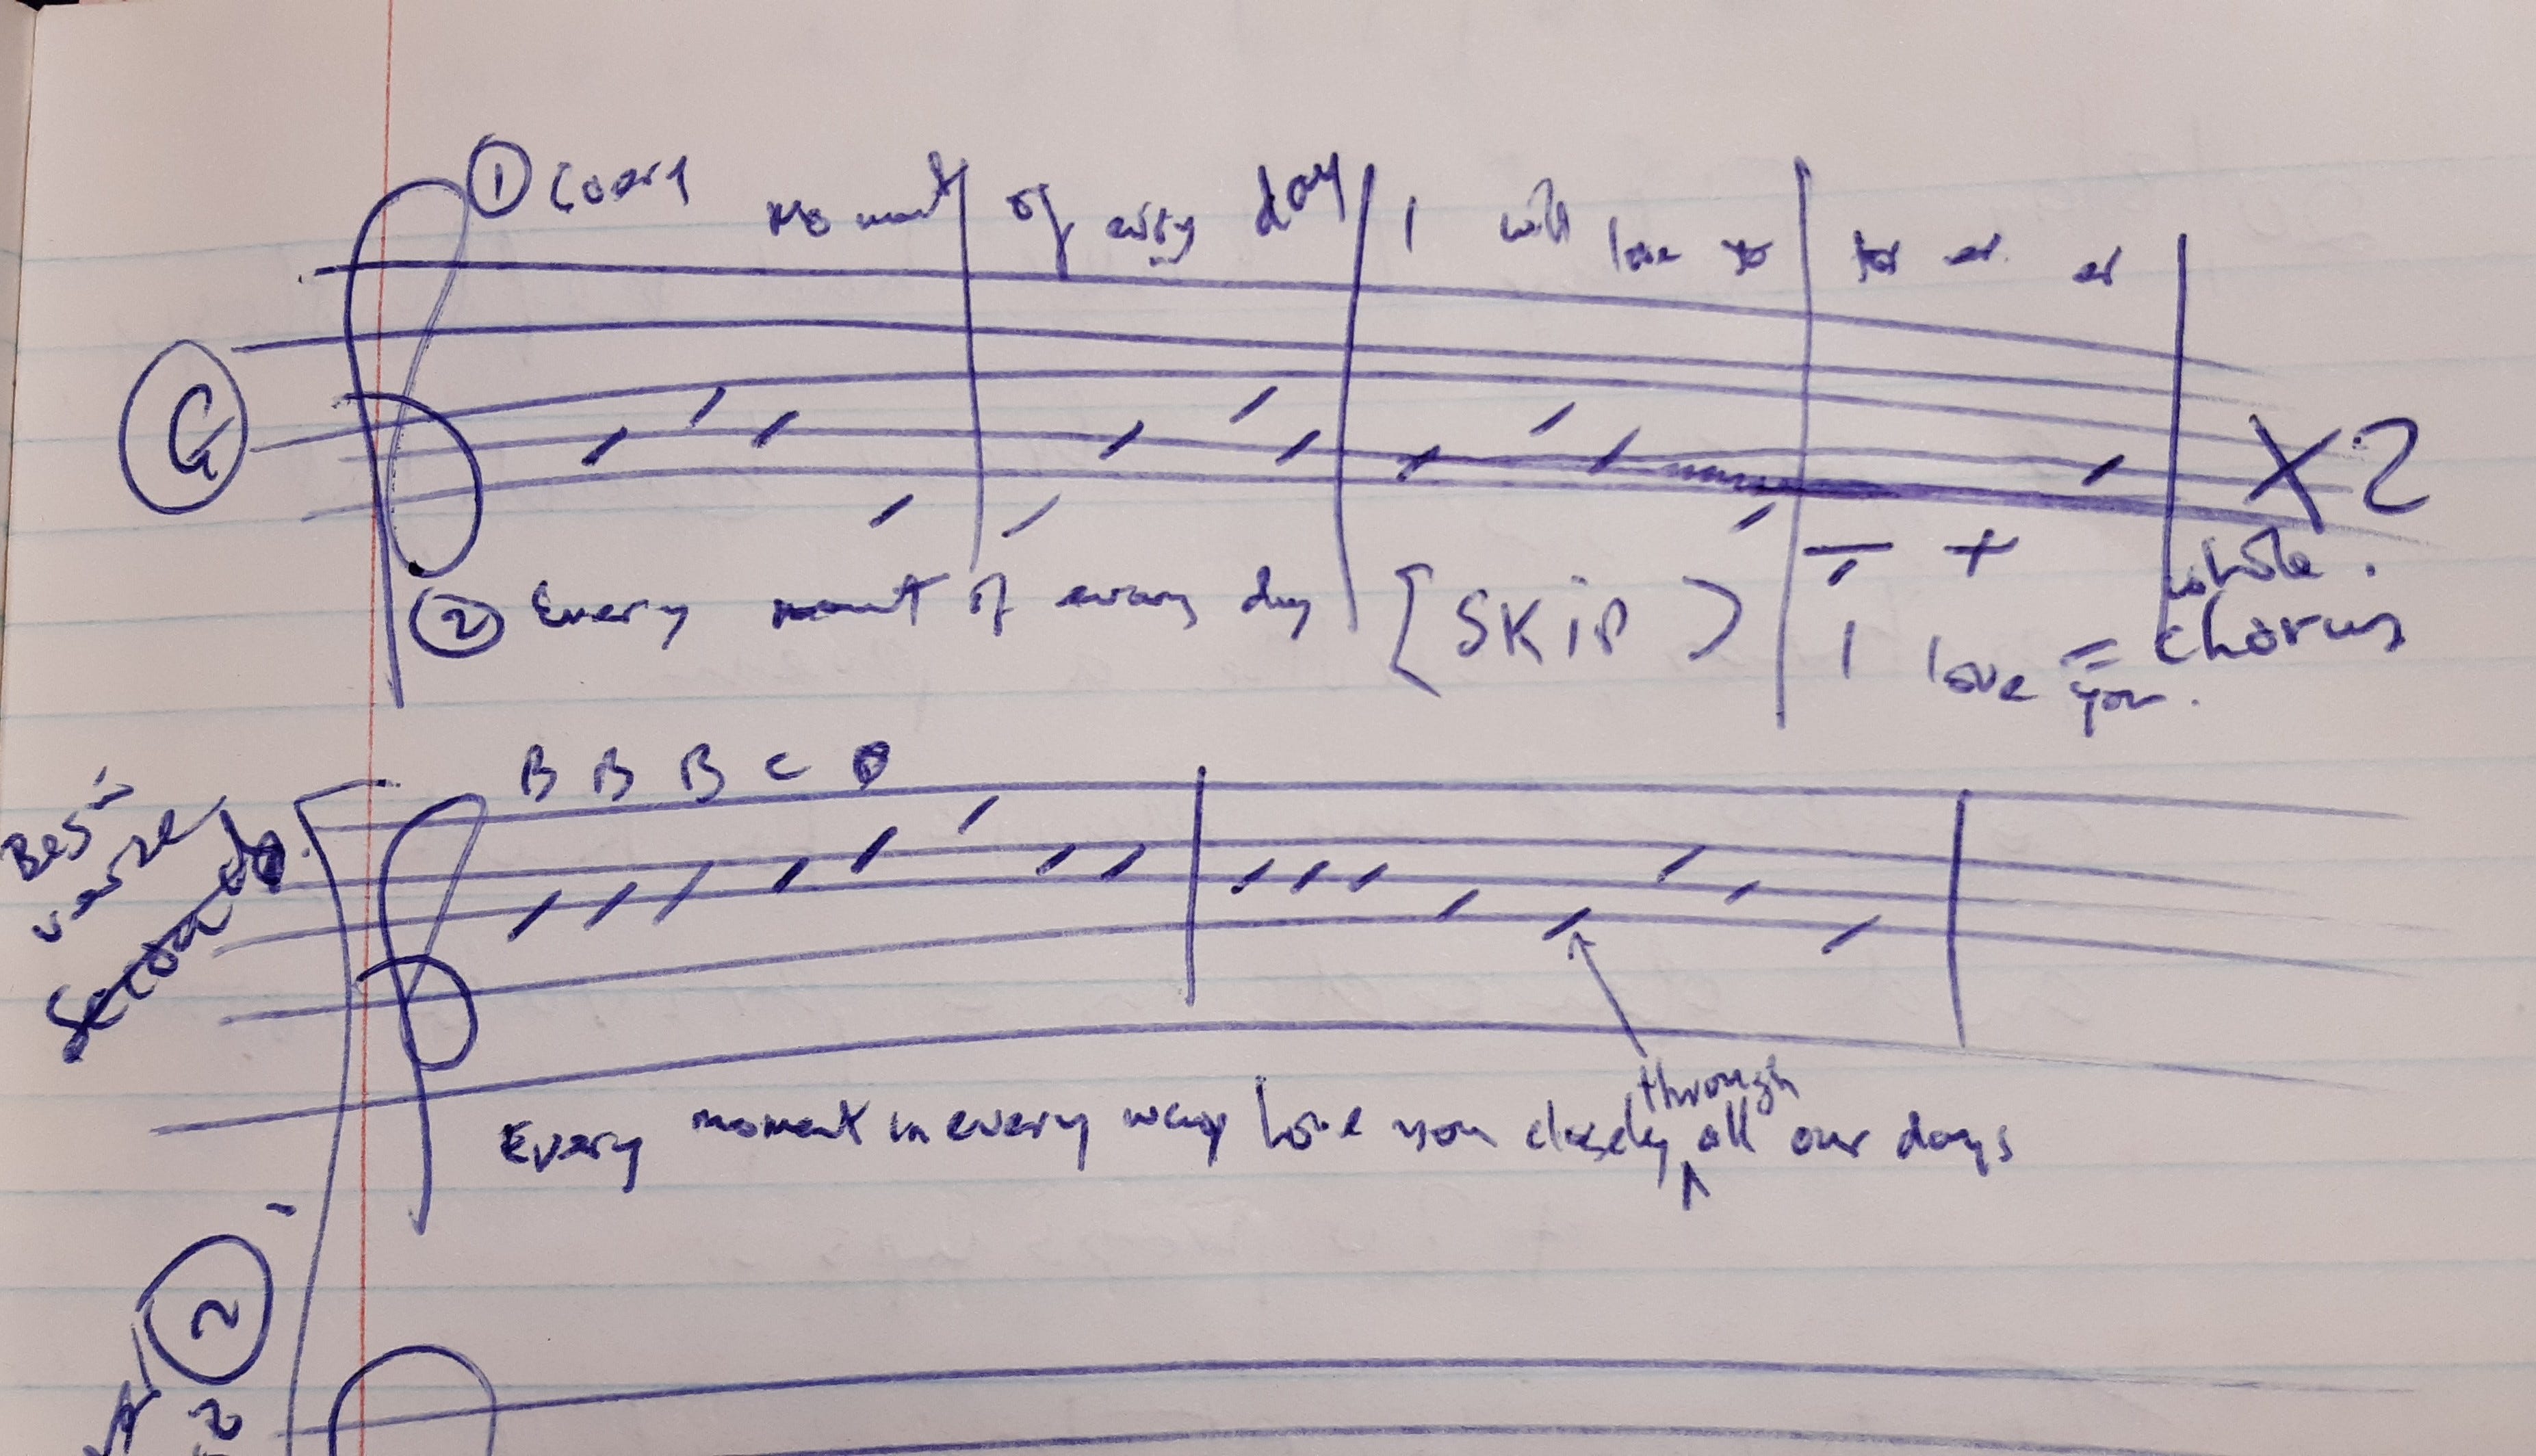 ① Every moment of every day I will love yo for ev. er
G
X2
② Every moment of every day [SKIP) I love you.
whole.
chorus
Best
verse
Second
B B B C D
through
Every moment in every way love you closely ^ all our days
②